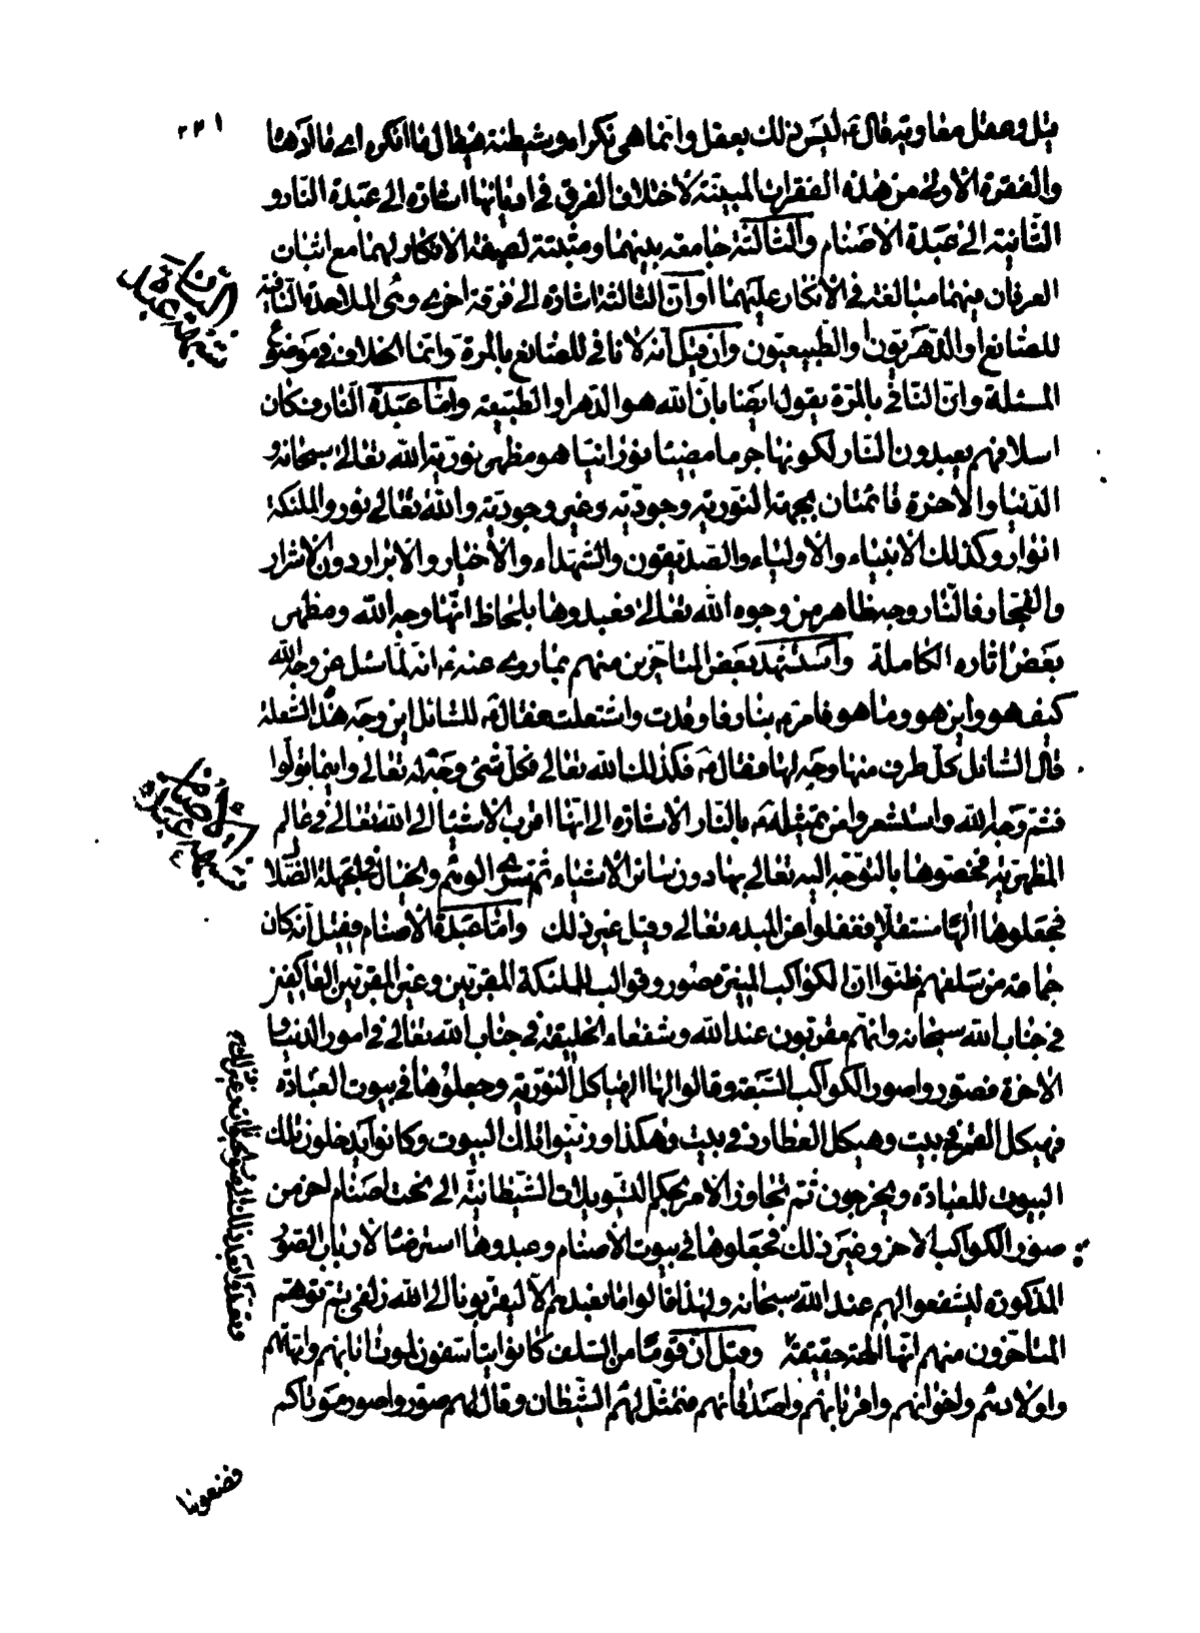 ٢٣١
قيل وعقل معاوية قال ليس ذلك بعقل وانما هي نكراء وشيطنة فيقال ما انكره اي ما ادهاه
والفقرة الاولى من هذه الفقرات المبينة لاختلاف الفرق في اديانها اشارة الى عبدة النار و
الثانية الى عبدة الاصنام والثالثة جامعة بينهما ومثبتة لصيغة الانكار لهما مع اثبات
العرفان منهما مبالغة في الانكار عليهما او ان الثالثة اشارة الى فرقة اخرى وهي الملاحدة النافية
للصانع او الدهريون والطبيعيون وان قيل انه لا نافي للصانع بالمرة وانما الخلاف في موضوع
المسئلة وان النافي بالمرة يقول ايضا بان الله هو الدهر او الطبيعة واما عبدة النار فكان
اسلافهم يعبدون النار لكونها جرما مضيئا نورانيا هو مظهر نورية الله تعالى سبحانه و
الدنيا والآخرة قائمتان بجهة النورية وجودية وغير وجودية والله تعالى نور والملئكة
انوار وكذلك الانبياء والاولياء والصديقون والشهداء والاخيار والابرار دون الاشرار
والفجار فالنار وجه ظاهر من وجوه الله تعالى فعبدوها بلحاظ انها وجه الله ومظهر
بعض اثاره الكاملة واستشهد بعض المتاخرين منهم بما روي عنه انه لما سئل عن وجه الله
كيف هو واين هو وما هو فامرهم بنار فاوقدت واشتعلت فقال للسائل اين وجه هذه الشعلة
قال السائل كل طرف منها وجه لها فقال فكذلك الله تعالى فكل شئ وجه له تعالى واينما تولوا
فثم وجه الله واستشعروا من تمثيله بالنار الاشارة الى انها اقرب الاشياء الى الله تعالى في عالم
المظهرية فخصوها بالتوجه اليه تعالى بها دون سائر الاشياء ثم الوهم والخيال الجهلة الضلال
فجعلوها الها مستقلا فغفلوا عن المبدء تعالى وقيل غير ذلك واما عبدة الاصنام فقيل انه كان
جماعة من سلفهم ظنوا ان الكواكب المنيرة صور وقوالب للملئكة المقربين وغير المقربين العاكفين
في جناب الله سبحانه وانهم مقربون عند الله وشفعاء الخليقة في جناب الله تعالى في امور الدنيا و
الاخرة فصوروا صور الكواكب السبعة وقالوا لها الهياكل النورية وجعلوها في بيوت العبادة
فهيكل القمر في بيت وهيكل العطارد في بيت وهكذا وزينوا تلك البيوت وكانوا يدخلون تلك
البيوت للعبادة ويخرجون ثم تجاوز الامر بحكم التسويلات الشيطانية الى نحت اصنام اخر من
صور الكواكب الاخر وغير ذلك فجعلوها في بيوت الاصنام وعبدوها استرضاء لارباب الصور
المذكورة ليشفعوا لهم عند الله سبحانه ولهذا قالوا ما نعبدهم الا ليقربونا الى الله زلفى ثم توهم
المتاخرون منهم انها الهة حقيقة وقيل ان قوما من السلف كانوا يتأسفون لموت ابائهم وامهاتهم
واولادهم واخوانهم واقربائهم واصدقائهم فتمثل لهم الشيطان وقال لهم صوروا صور موتاكم
فصنعوها